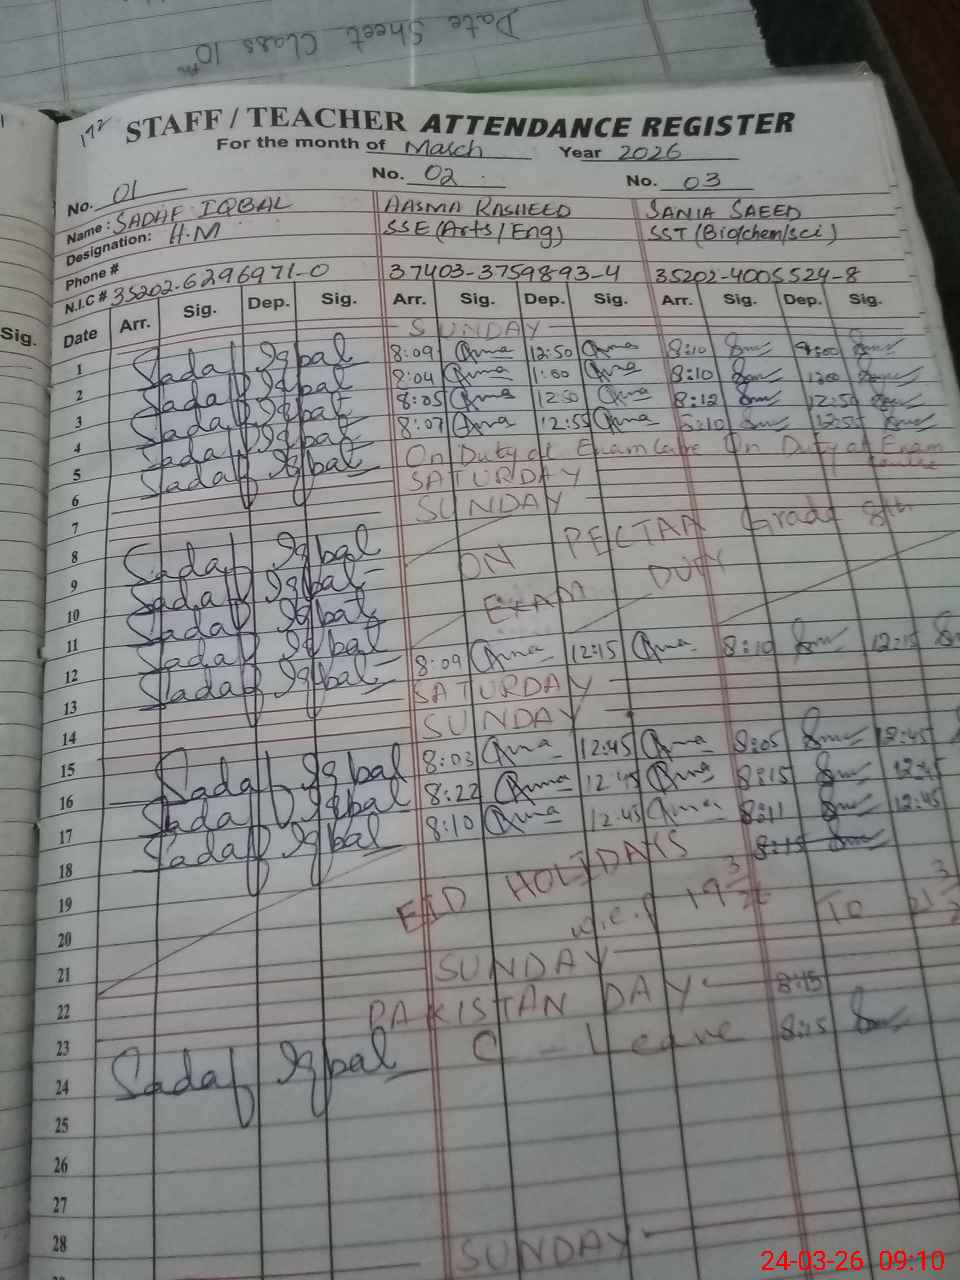 Date Sheet Class 10th
172
STAFF / TEACHER ATTENDANCE REGISTER
For the month of March Year 2026
No. 01 No. 02 No. 03
Name: SADAF IQBAL AASMA RASHEED SANIA SAEED
Designation: H.M SSE (Arts/Eng) SST (Bio/chem/sci)
Phone #
N.I.C # 35202-6296971-0 37403-3759893-4 35202-4005524-8
Sig.
Date Arr. Sig. Dep. Sig. Arr. Sig. Dep. Sig. Arr. Sig. Dep. Sig.
1 SUNDAY
2 Sadaf Iqbal 8:09 12:50 8:10
3 Sadaf Iqbal 8:04 1:00 8:10
4 Sadaf Iqbal 8:05 12:50 8:12 12:50
5 Sadaf Iqbal 8:07 12:55 8:10 12:55
6 Sadaf Iqbal On Duty at Exam On Duty at Exam
7 SATURDAY
8 SUNDAY
9 Sadaf Iqbal ON PECTAA Grade 8th
10 Sadaf Iqbal EXAM DUTY
11 Sadaf Iqbal
12 Sadaf Iqbal
13 Sadaf Iqbal 8:09 12:15 8:10 12:15
14 SATURDAY
15 SUNDAY
16 Sadaf Iqbal 8:03 12:45 8:05 12:45
17 Sadaf Iqbal 8:22 12:45 8:15 12:45
18 Sadaf Iqbal 8:10 12:45 8:11 12:45
19 EID HOLIDAYS 8:15
20 w.e.f 19 3 26 TO 21 3
21
22 SUNDAY
23 PAKISTAN DAY 8:15
24 Sadaf Iqbal C-Leave 8:15
25
26
27
28
SUNDAY
24-03-26 09:10